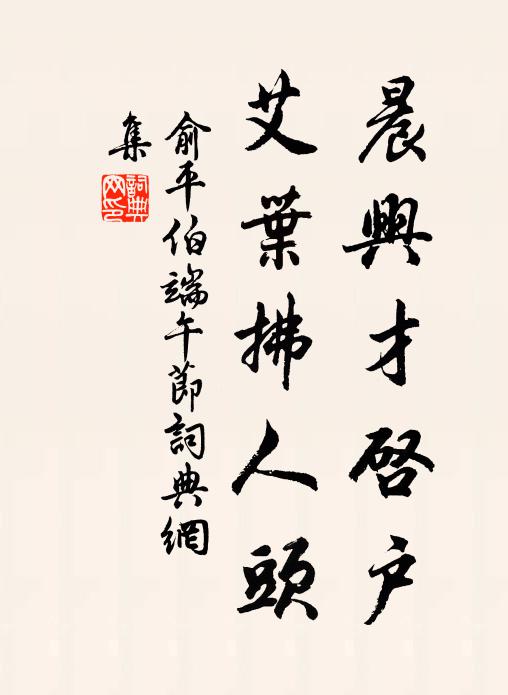 晨興才啓户
艾葉拂人頭
俞平伯端午節詞典網
集
詞典网印